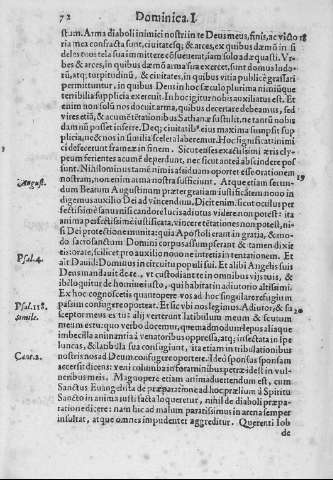 72 Dominica. I.
stum. Arma diaboli inimici nostri in te Deus meus, finis, ac victo 18
ria mea confracta sunt, ciuitatesq; & arces, ex quibus dæmō in si
deles tuos tela sua immittere cōsueuerat, iam solo adæquasti. Vr-
bes & arces, in quibus dæmō arma sua exercet, sunt domus ludo-
rū, atq; turpitudinū, & ciuitates, in quibus vitia publicè grassari
permittuntur, in quibus Deus in hoc sæculo plurima niniuúque
terribilia supplicia exercuit. In hoc igitur nobis auxiliatus est. Et
enim non solū nos docuit arma, quibus decertare debeamus, sed
vires etiā, & acumē tētationibus Sathanæ sustulit, ne tantū nobis
damnū posset inferre. Deq; ciuitatib9 eius maxima sumpsit sup
plicia, ne & nos in similia scelera laberemur. Hoc significat inimi
ci defecerunt frameæ in finem. Sicut enses exacutissimi æris cly-
peum ferientes acumē deperdunt, nec sicut antea abscindere pos
sunt. Nihilominus tamē nimis assiduam oportet esse orationem
nostram, non enim arma nostra sufficiunt. Atque etiam secun- 19
August. dum Beatum Augustinum præter gratiam iustificātem nouo in
digemus auxilio Dei ad vincendum. Dicit enim. sicut oculus per
fectissimè sanus nisi candore lucis adiutus videre non potest: ita
anima perfectissimè iustificata, vincere tētationes non potest, ni-
si Dei protectione munita: quia Apostoli erant in gratia, & mo-
do sacrosanctum Domini corpus assumpserant & tamen dixit
eis: orate, scilicet pro auxilio nouo ne intretis in tentationem. Et
Psal. 4. ait Dauid: Dominus in circuitu populi sui. Et alibi Angelis suis
Deus mandauit de te, vt custodiant te in omnibus vijs tuis, &
ibi loquitur de homine iusto, qui habitat in adiutorio altissimi.
Ex hoc cognoscetis quantopere vos ad hoc singulare refugium
Psal. 118. passim confugere oportet. Et sic vbi nos legimus. Adiutor, & su 20
simile. sceptor meus es tu: alij verterunt latibulum meum & scutum
meum es tu: quo verbo docemur, quemadmodum lepus aliaque
imbecilla animantia à venatoribus oppressa, atq; insectata in spe
luncas, & latibula sua confugiunt, ita etiam in tribulationibus
Cant. 2. nostris nos ad Deum confugere oportere. Ideò sponsus sponsam
accersit dicens: veni columba in foraminibus petræ idest in vul-
neribus meis. Magnopere etiam animaduertendum est, cum
Sanctus Euangelista de præparatione ad hoc prælium à Spiritu
Sancto in anima iusti facta loqueretur, nihil de diaboli præpa-
ratione dicere: nam hic ad malum paratissimus in arena semper
insultat, atque omnes impudenter aggreditur. Querenti Iob
de